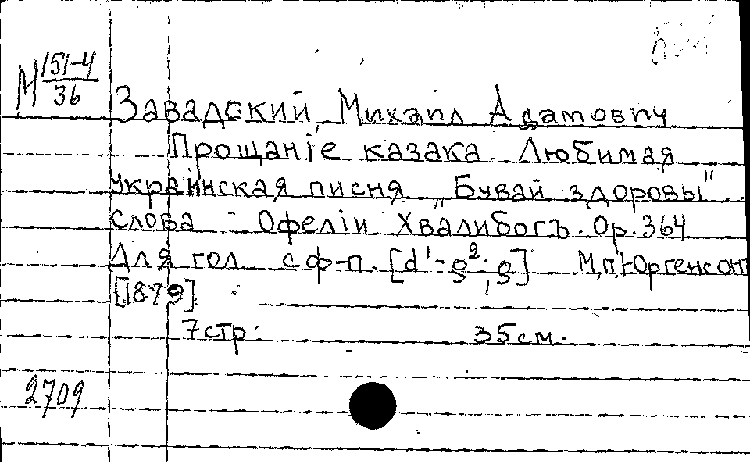 М 151-4
36
Завадский, Михаил Адамович
Прощанiе казака. Любимая
украинская писня „Бувай здоровы"
слова Офелiи Хвалибогъ. Op. 364
Для гол. с ф-п. [d¹-g²; g] М, П. Юргенсон
[1879]
7 стр. 35 см.
2709